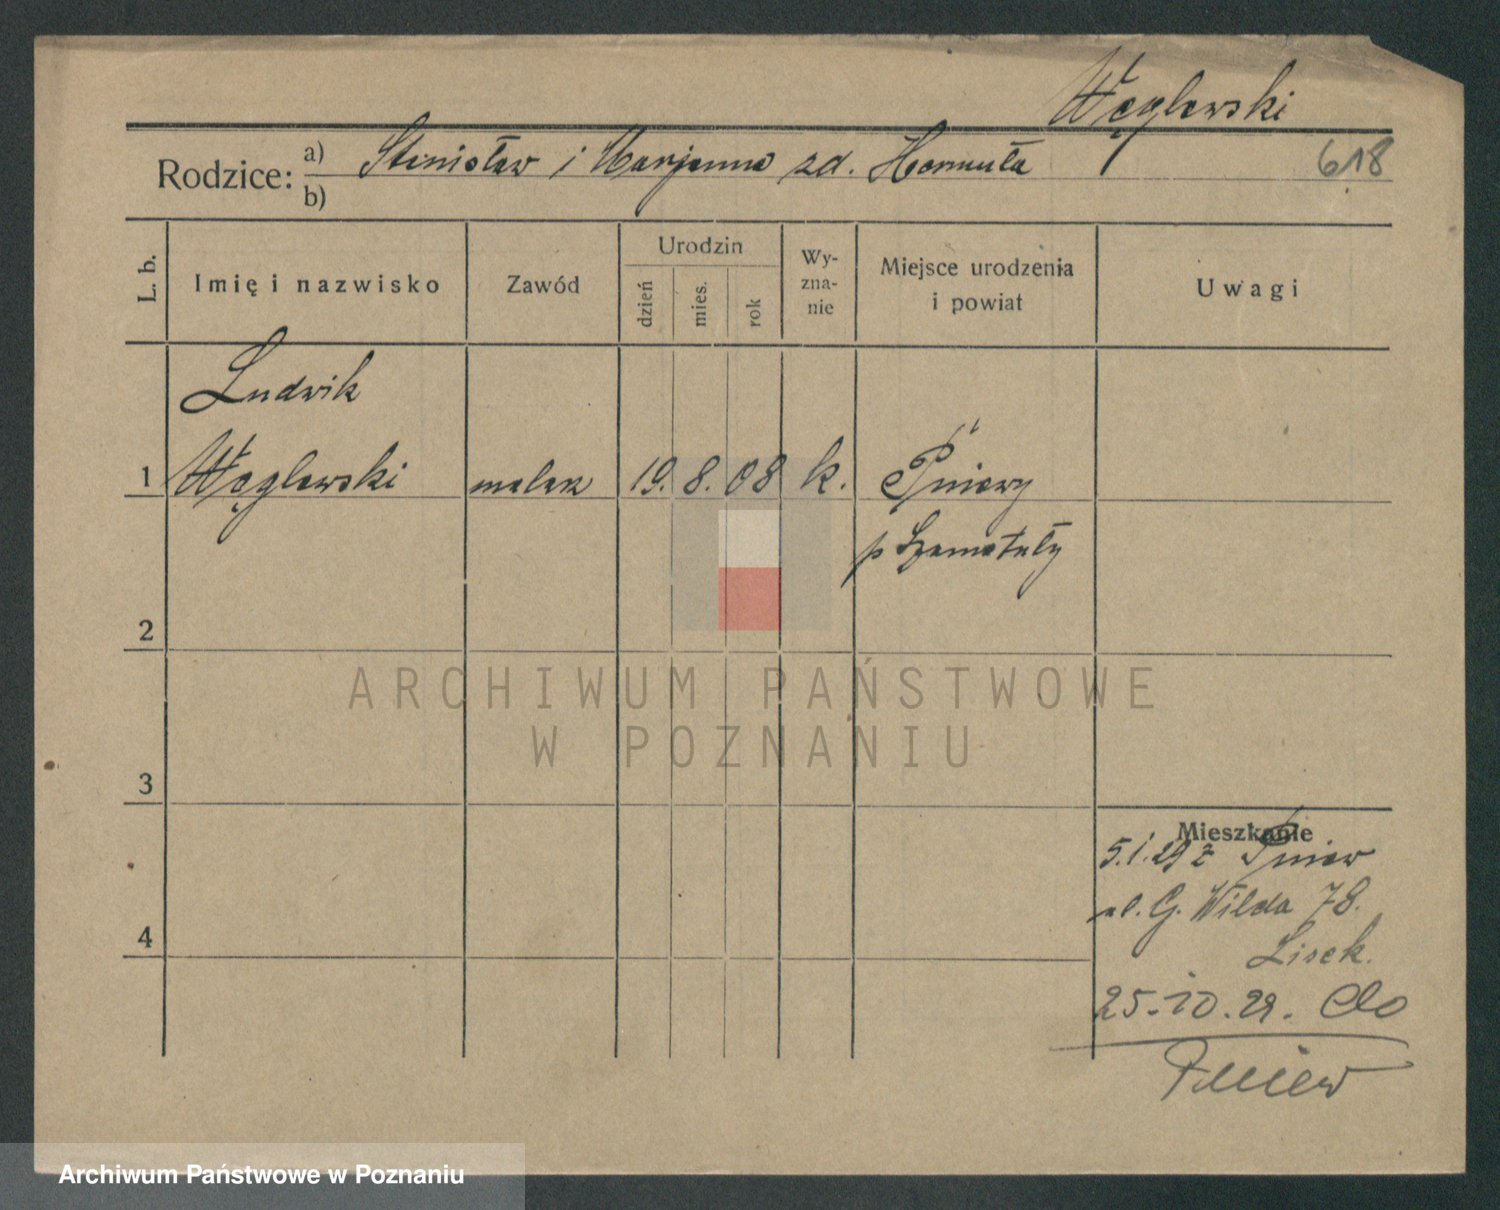 Węglewski
618
Rodzice: a) Stanisław i Marjanna zd. Hamuła
b)
L. b. Imię i nazwisko Zawód Urodzin dzień mies. rok Wy-zna-nie Miejsce urodzenia i powiat Uwagi
Ludwik
1 Węglewski malarz 19. 8. 08 k. Pniewy
p Szamotuły
2
3
4
Mieszkanie
5.1.29 z Pniew
ul. G. Wilda 78.
Lisek.
25.10.29. do
Pniew
ARCHIWUM PAŃSTWOWE
W POZNANIU
Archiwum Państwowe w Poznaniu